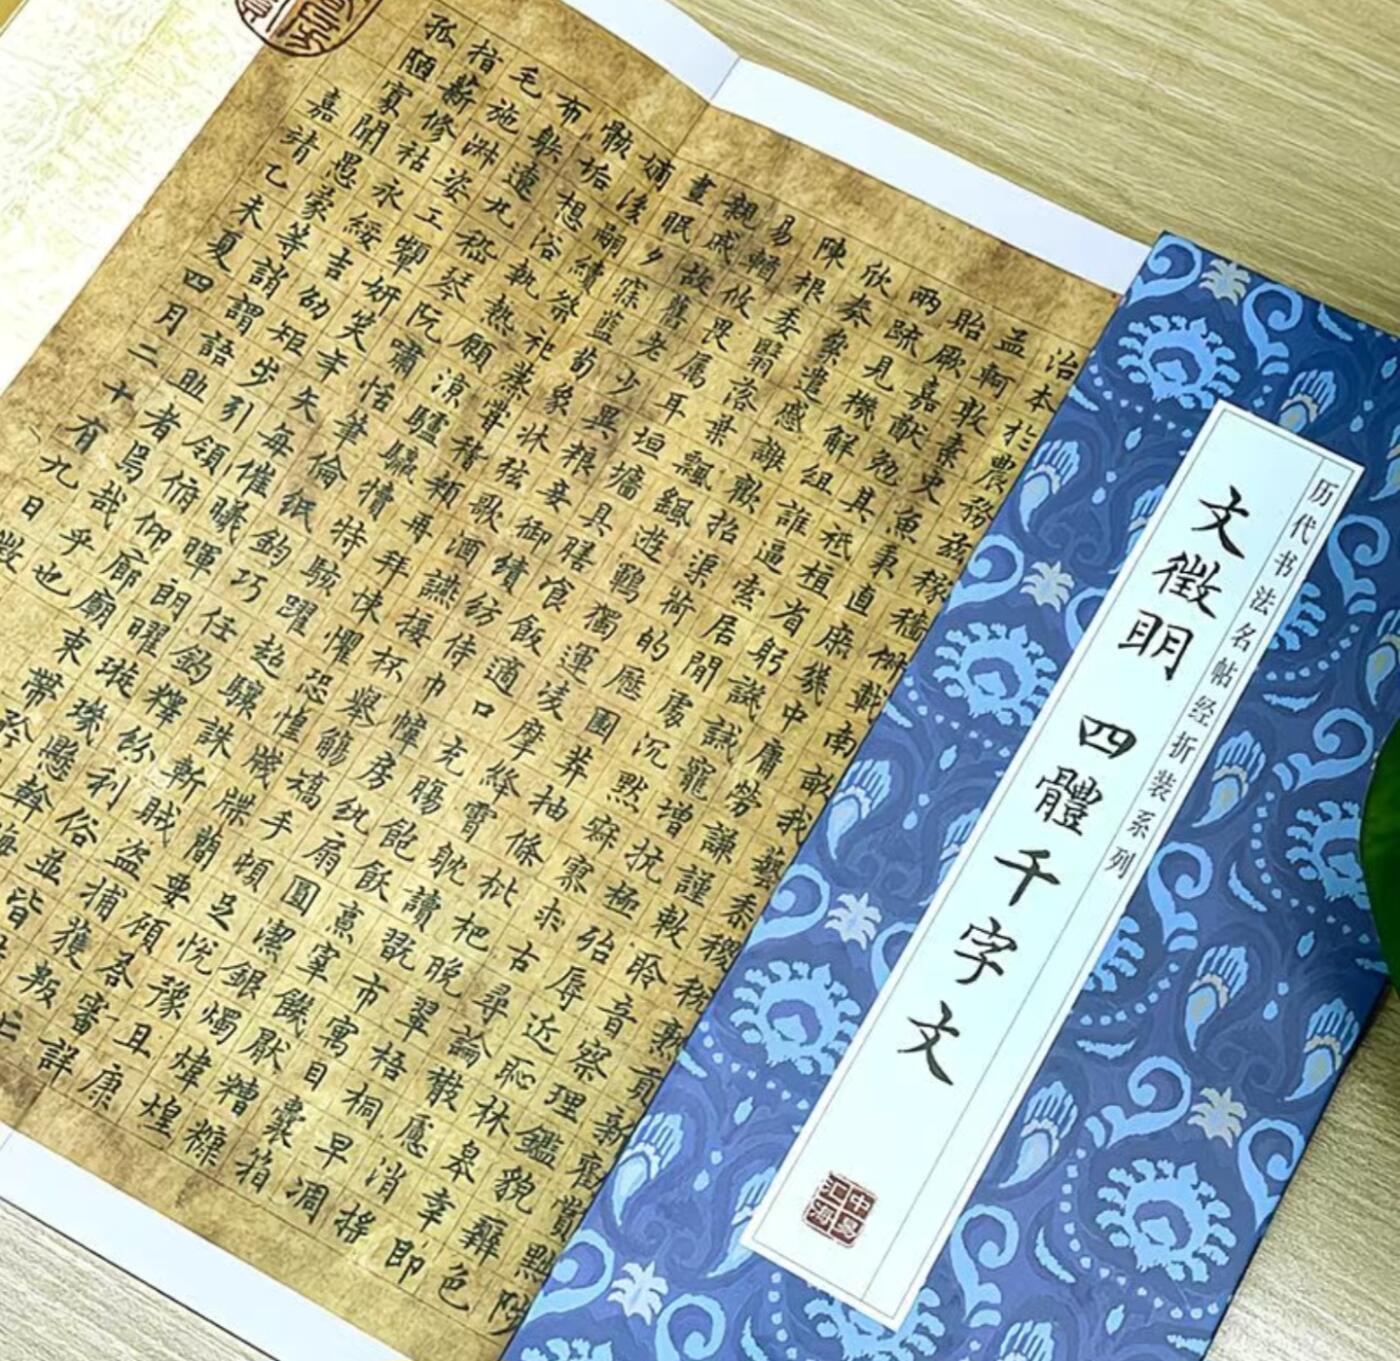 治本於農務茲稼穡俶載南畝我藝黍稷稅熟貢新勸賞黜陟
孟軻敦素史魚秉直庶幾中庸勞謙謹敕聆音察理鑑貌辨色
貽厥嘉猷勉其祗植省躬譏誡寵增抗極殆辱近恥林皋幸即
兩疏見機解組誰逼索居閒處沉默寂寥求古尋論散慮逍遙
欣奏累遣慼謝歡招渠荷的歷園莽抽條枇杷晚翠梧桐早凋
陳根委翳落葉飄颻遊鵾獨運凌摩絳霄耽讀翫市寓目囊箱
易輶攸畏屬耳垣牆具膳飡飯適口充腸飽飫烹宰饑厭糟糠
親戚故舊老少異糧妾御績紡侍巾帷房紈扇圓潔銀燭煒煌
晝眠夕寐藍筍象牀絃歌酒讌接杯舉觴矯手頓足悅豫且康
嫡後嗣續祭祀蒸嘗稽顙再拜悚懼恐惶牋牒簡要顧答審詳
骸垢想浴執熱願涼驢騾犢特駭躍超驤誅斬賊盜捕獲叛亡
布躲遼丸嵇琴阮嘯恬筆倫紙鈞巧任釣釋紛利俗並皆
毛施淑姿工顰妍笑年矢每催曦暉朗曜璇璣懸斡晦
指薪修祜永綏吉劭矩步引領俯仰廊廟束帶矜
孤陋寡聞愚蒙等誚謂語助者焉哉乎也
嘉靖乙未夏四月二十有九日徵
历代书法名帖经折装系列
文徵明 四體千字文